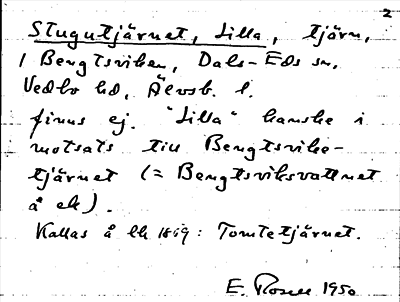 2
Stugutjärnet, Lilla, tjärn,
i Bengtsviken, Dals-Eds sn,
Vedbo hd, Älvsb. l.
finns ej. "Lilla" kanske i
motsats till Bengtsviks-
tjärnet (= Bengtsviksvattnet
å ek).
Kallas å lk 1869: Tomtetjärnet.
E. Rosell 1950